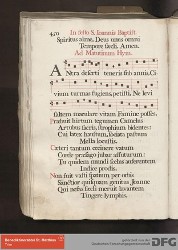 420 In festo S. Ioannis Baptistæ
Spiritus almæ, Deus unus omni
Tempore sæcli. Amen.
Ad Matutinum Hym.
Antra deserti teneris sub annis, Ci
vium turmas fugiens, petisti, Ne levi
saltem maculare vitam Famine posses.
Præbuit hirtum tegimen Camelus
Artubus sacris, strophium bidentes:
Cui latex haustum, sociata pastum
Mella locustis.
Cæteri tantum cecinere vatum
Corde præsago jubar affuturum:
Tu quidem mundi scelus auferentem
Indice prodis.
Non fuit vasti spatium per orbis
Sanctior quisquam genitus Joanne
Qui nefas sæcli meruit lavantem
Tingere lymphis.
DFG